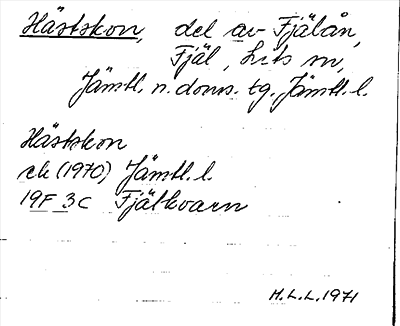 Hästskon, del av Fjälån,
Fjäl, Lits sn,
Jämtl. n. doms. tg. Jämtl. l.
Hästskon
ek (1970) Jämtl. l.
19F 3C Fjätkvarn
H.L.L. 1971